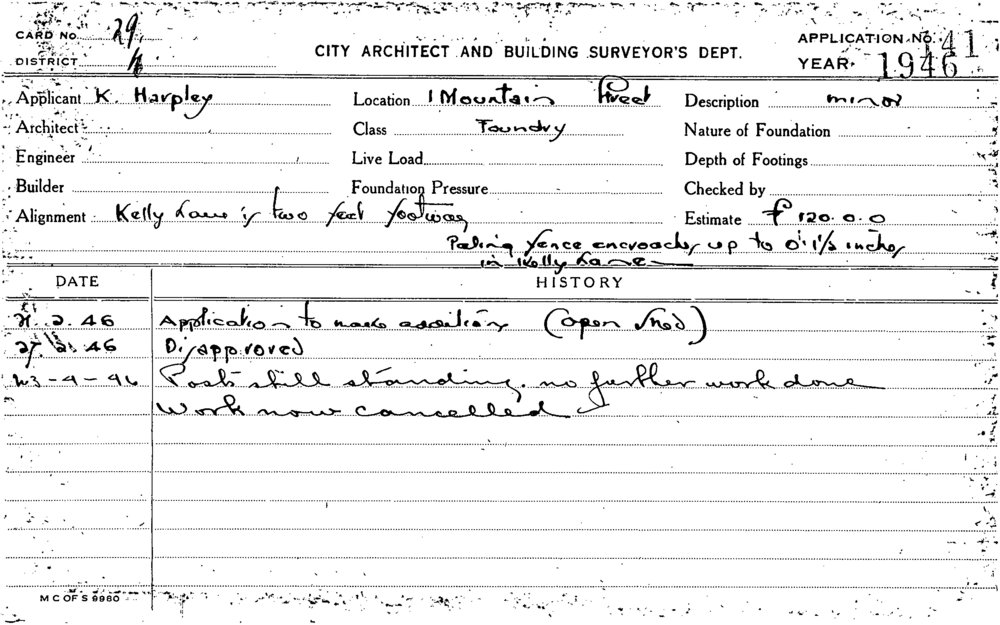 CARD No. 29
DISTRICT
CITY ARCHITECT AND BUILDING SURVEYOR'S DEPT.
APPLICATION No. 141
YEAR 1946
Applicant K. Harpley Location 1 Mountain Street Description minor
Architect Class Foundry Nature of Foundation
Engineer Live Load Depth of Footings
Builder Foundation Pressure Checked by
Alignment Kelly Lane is two feet footway Estimate £120.0.0
Paling fence encroaches up to 0'.1½ inches
in Kelly Lane
DATE HISTORY
2.46 Application to make additions (open shed)
27.2.46 Disapproved
Posts still standing. no further work done
Work now cancelled
M C OF S 9960